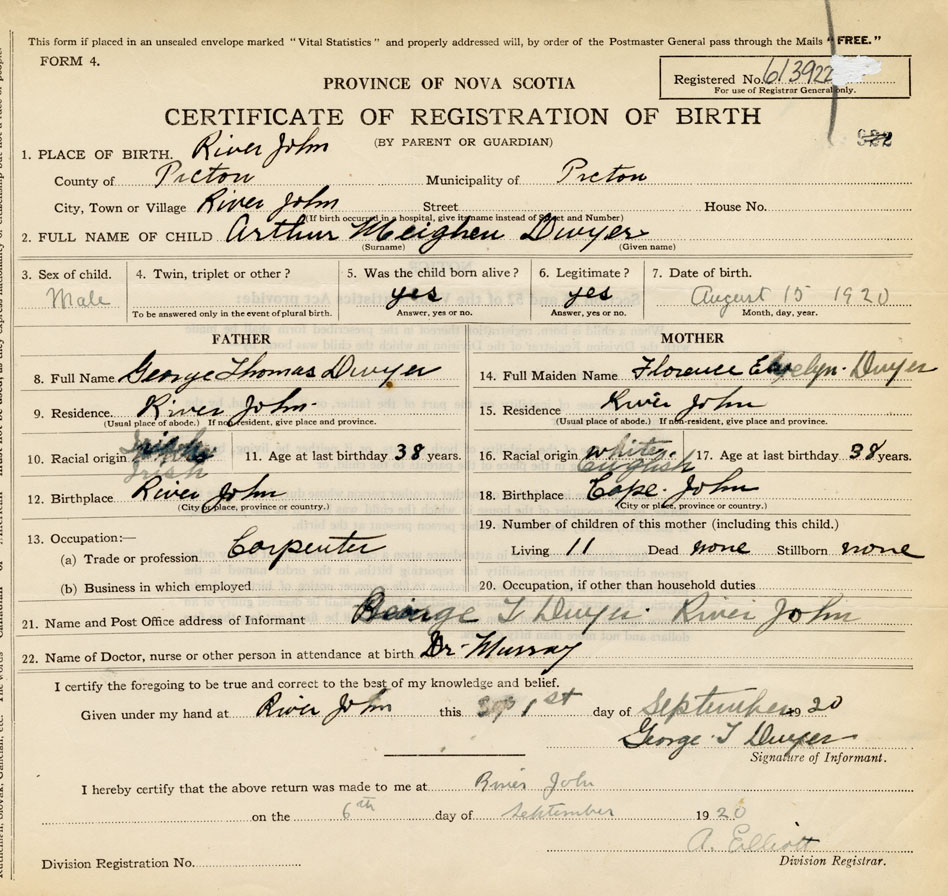 This form if placed in an unsealed envelope marked "Vital Statistics" and properly addressed will, by order of the Postmaster General pass through the Mails "FREE."
FORM 4.
Registered No. 613922
For use of Registrar General only.
PROVINCE OF NOVA SCOTIA
CERTIFICATE OF REGISTRATION OF BIRTH
(BY PARENT OR GUARDIAN)
1. PLACE OF BIRTH. River John
County of Pictou Municipality of Pictou
City, Town or Village River John Street House No.
(If birth occurred in a hospital, give its name instead of Street and Number)
2. FULL NAME OF CHILD Arthur Meighen Dwyer
(Surname) (Given name)
3. Sex of child. 4. Twin, triplet or other? 5. Was the child born alive? 6. Legitimate? 7. Date of birth.
Male yes yes August 15 1920
To be answered only in the event of plural birth. Answer, yes or no. Answer, yes or no. Month, day, year.
FATHER MOTHER
8. Full Name George Thomas Dwyer 14. Full Maiden Name Florence Evelyn Dwyer
9. Residence. River John 15. Residence River John
(Usual place of abode.) If non-resident, give place and province. (Usual place of abode.) If non-resident, give place and province.
10. Racial origin Irish 11. Age at last birthday 38 years. 16. Racial origin white English 17. Age at last birthday 38 years.
12. Birthplace River John 18. Birthplace Cape John
(City or place, province or country.) (City or place, province or country.)
13. Occupation:— 19. Number of children of this mother (including this child.)
(a) Trade or profession. Carpenter Living 11 Dead none Stillborn none
(b) Business in which employed 20. Occupation, if other than household duties
21. Name and Post Office address of Informant George T Dwyer River John
22. Name of Doctor, nurse or other person in attendance at birth Dr. Murray
I certify the foregoing to be true and correct to the best of my knowledge and belief.
Given under my hand at River John this 1st day of September 1920
George T Dwyer
Signature of Informant.
I hereby certify that the above return was made to me at River John
on the 6th day of September 1920
A. Elliott
Division Registration No. Division Registrar.